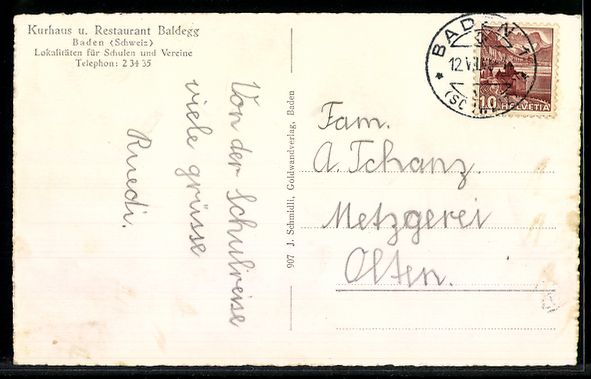 Kurhaus u. Restaurant Baldegg
Baden (Schweiz)
Lokalitäten für Schulen und Vereine
Telephon: 2 34 35
Von der Schulreise
viele grüsse
Ruedi.
907 J. Schmidli, Goldwandverlag, Baden
BADEN 1
12.V
10 HELVETIA
Fam.
A. Tschanz.
Metzgerei
Olten.